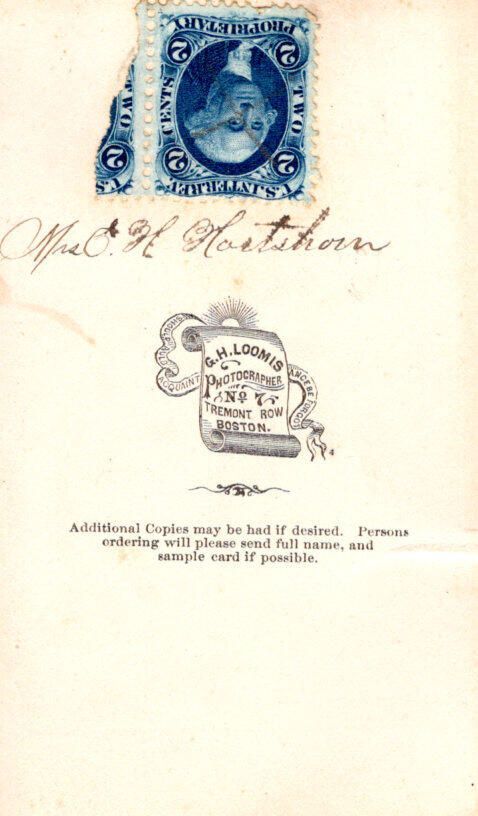 2 PROPRIETARY 2
TWO CENTS
2 U.S. INTER. REV. 2
2
TWO
2 U.S.
Mrs E. H Hartshorn
SHOULD AULD ACQUAINTANCE BE FORGOT
G. H. LOOMIS
PHOTOGRAPHER
No 7
TREMONT ROW
BOSTON.
4
Additional Copies may be had if desired. Persons
ordering will please send full name, and
sample card if possible.